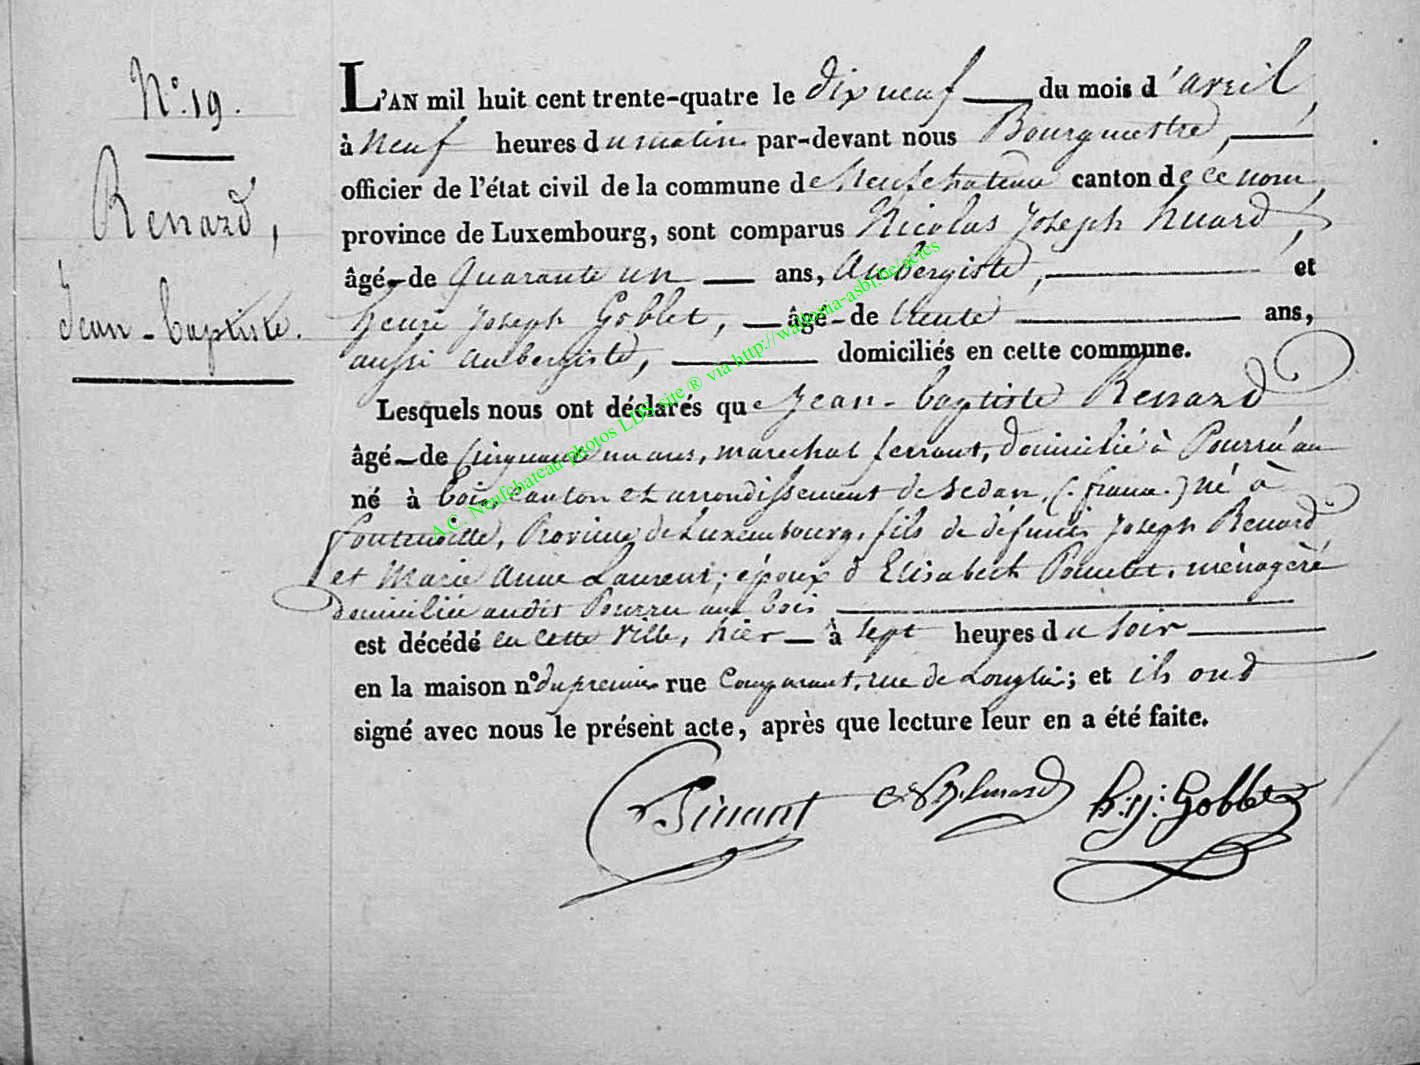 N.° 19.
Renard,
Jean-baptiste.
L'AN mil huit cent trente-quatre le dix neuf du mois d'avril,
à Neuf heures du matin par-devant nous Bourgmestre,
officier de l'état civil de la commune de Neufchateau canton de ce nom,
province de Luxembourg, sont comparus Nicolas Joseph huard,
âgé-de quarante un ans, Aubergiste, et
henri Joseph Goblet, âgé-de trente ans,
aussi aubergiste, domiciliés en cette commune.
Lesquels nous ont déclarés que Jean-baptiste Renard
âgé-de Cinquante un ans, marechal ferrant, domicilié à Pourru au
né à bois, canton et arrondissement de Sedan, (france) né à
fontenoille, Province de Luxembourg, fils de défunts Joseph Renard
et Marie Anne Laurent; époux d'Elisabeth, ménagère
domiciliée audit Pourru aux bois
est décédé en cette ville, hier à sept heures du soir
en la maison n° du premier rue Comparant, rue de Longlier; et ils ont
signé avec nous le présent acte, après que lecture leur en a été faite.
h: j: Goblet
A.C. Neufchateau photos LDS site ® via http://wallonia-asbl.be/actes